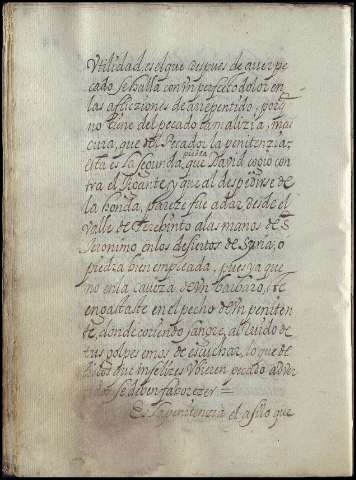 Vtilidad, es el que despues de auer pe
cado se halla con vn perfecto dolor en
las aflicziones de arrepentido, porq
no tiene del pecado la malizia, mas
cura, que del Pecador la penitenzia,
esta es la segunda piedra que Dauid cojio con
tra el Gigante, y que al despedirse de
la honda, pareze fue a dar desde el
valle de Terebinto a las manos de S.
Geronimo en los desiertos de Syria, o
piedra bien empleada, pues ya que
no en la caueza de vn barbaro, te
engastaste en el pecho de vn peniten
te, donde corriendo sangre, al ruido de
tus golpes emos de escuchar, lo que de
infelizes vbieren pecado
se deben faborezer =
Es la penitenzia el asilo que